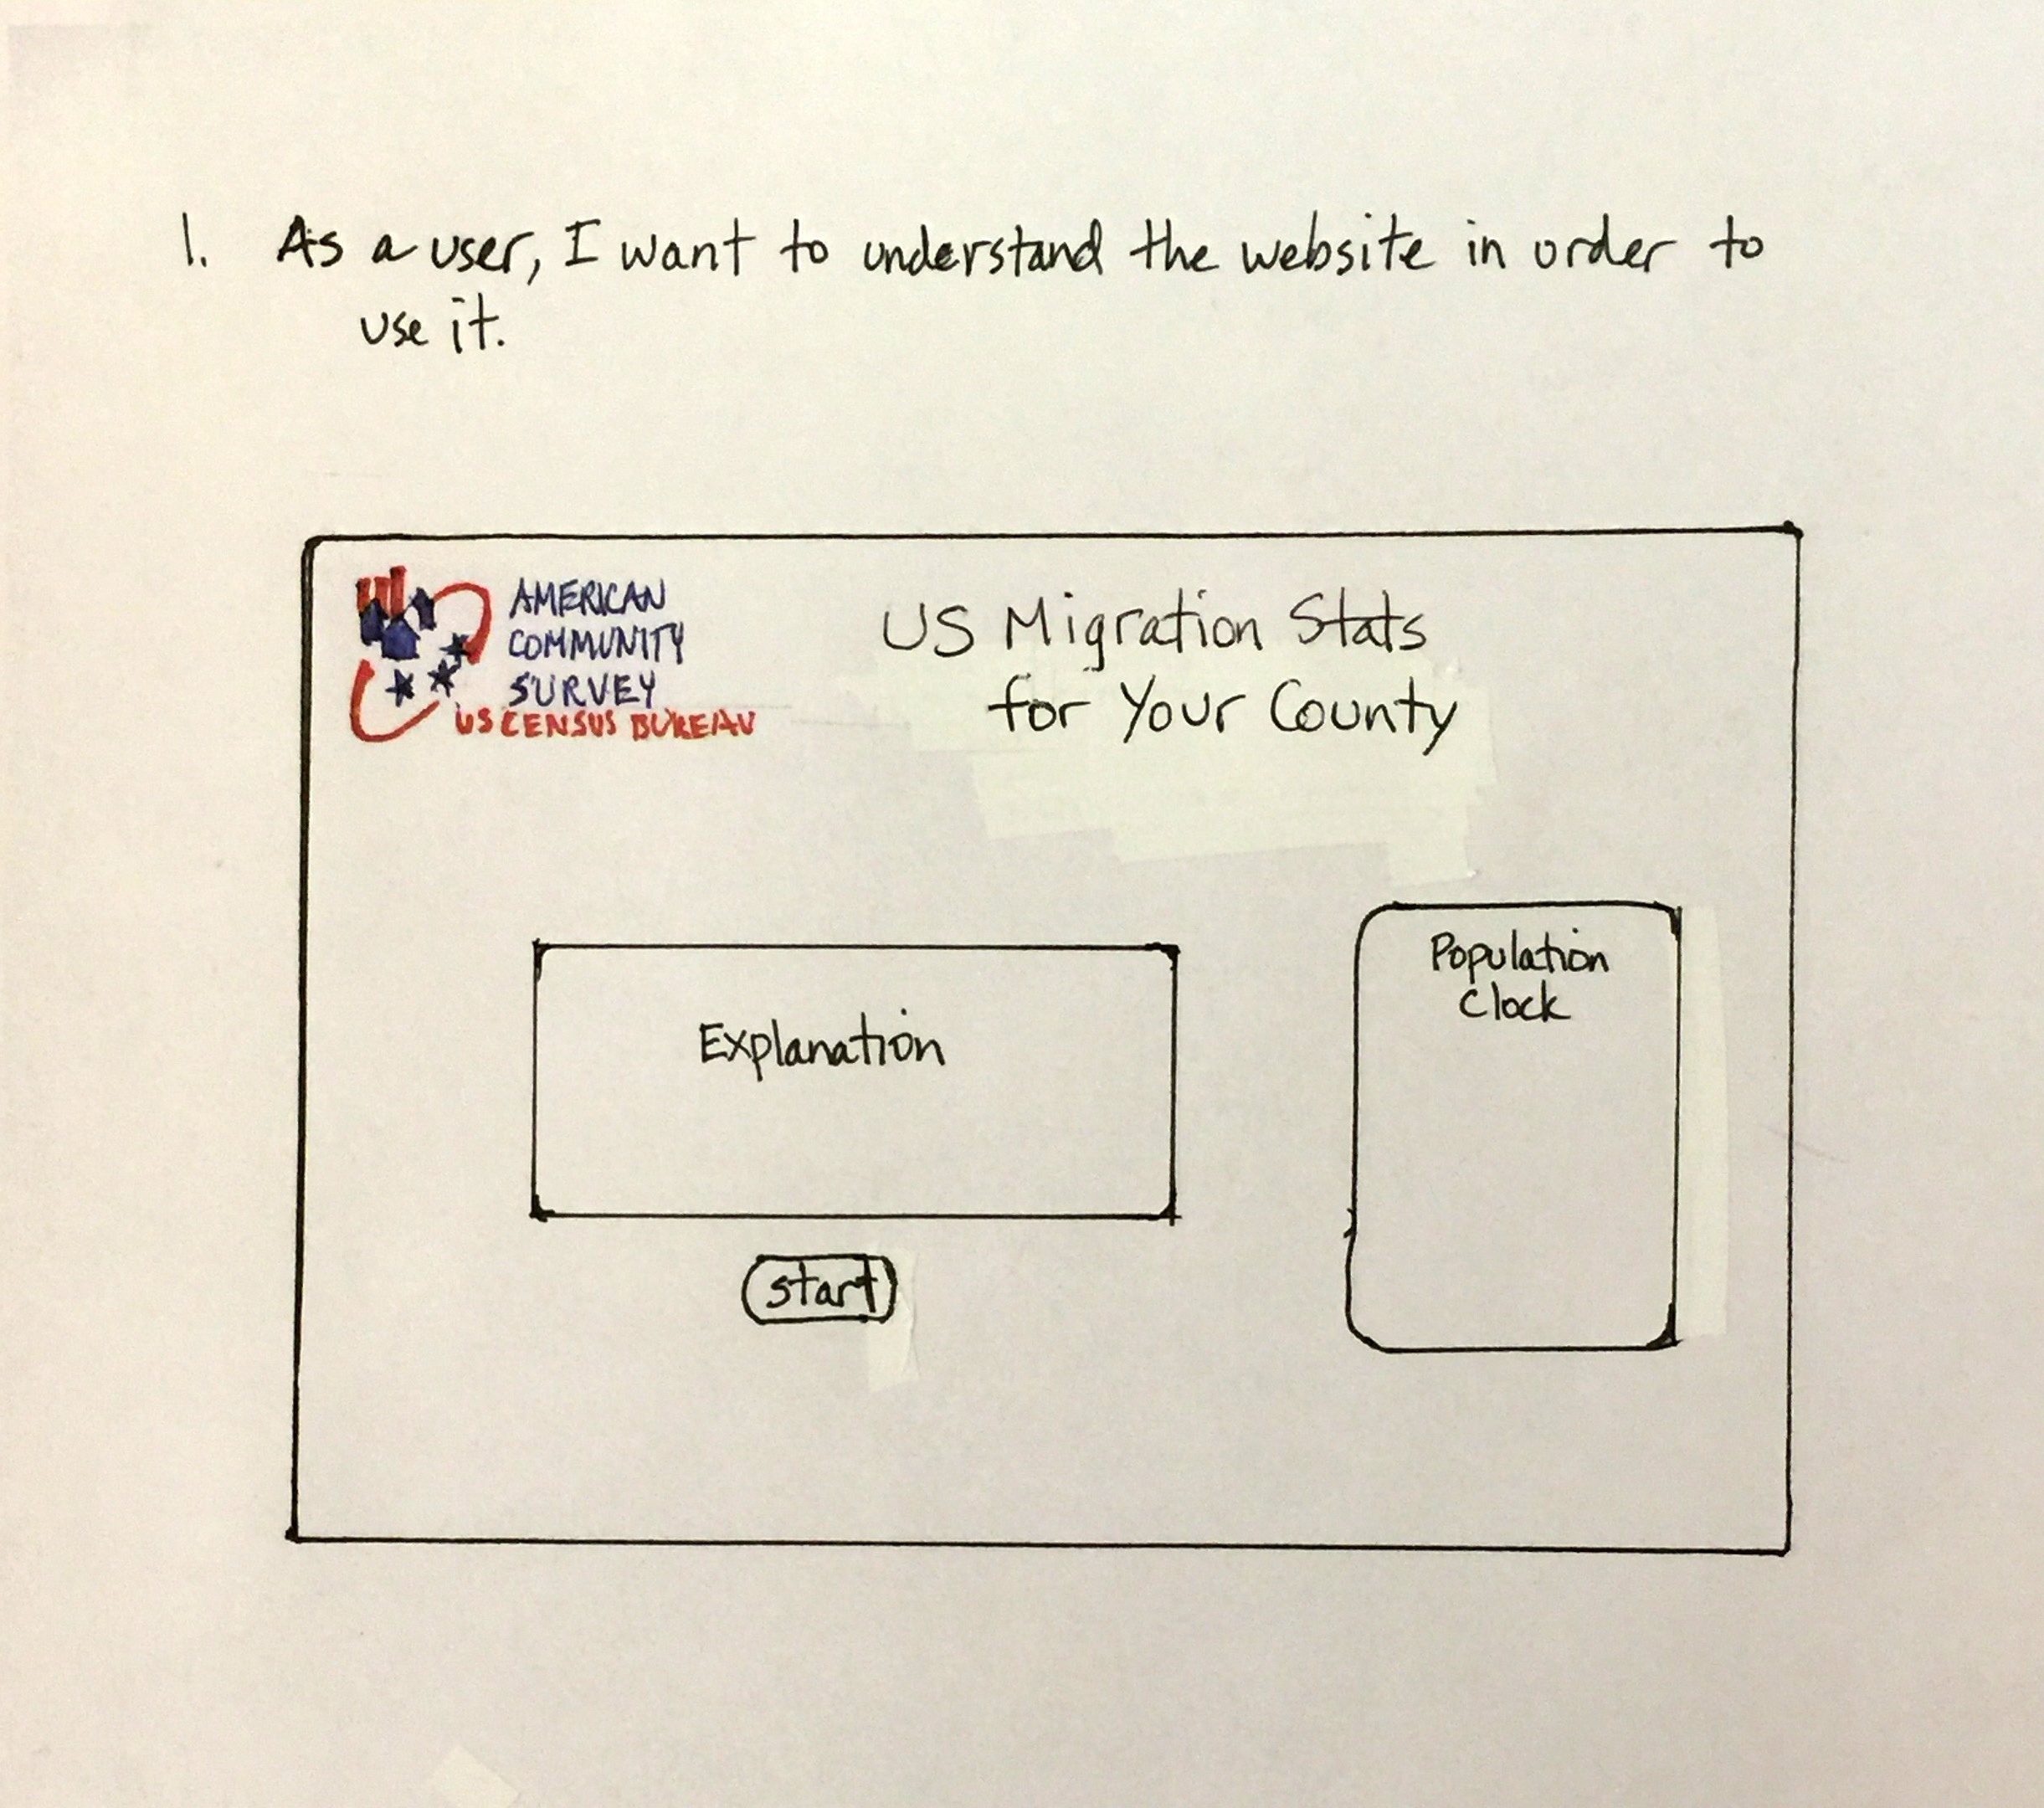 1. As a user, I want to understand the website in order to
use it.
AMERICAN
COMMUNITY
SURVEY
US CENSUS BUREAU
US Migration Stats
for Your County
Explanation
start
Population
Clock